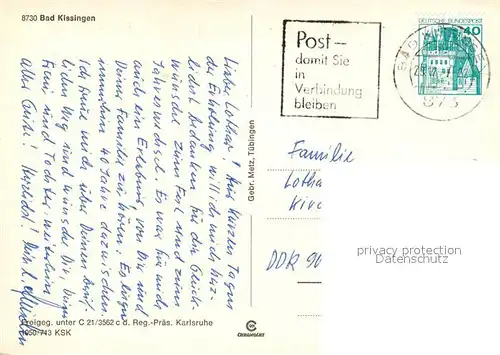 8730 Bad Kissingen
Lieber Lothar! Aus kurzen Tagen
der Erholung will ich mich herz-
lichst bedanken für die Glück-
wünsche zum Fest und zum
Jahreswechsel. Es war für mich
auch ein Erlebnis von Dir und
Deiner Familie zu hören. Es liegen
immerhin 40 Jahre dazwischen.
Ich freue mich über Deinen
lichen Weg und wünsche Dir, Deiner
Frau und Tochter weiterhin
alles Gute! Herzlichst! Dein
Gebr. Metz, Tübingen
Freigeg. unter C 21/3562 c d. Reg.-Präs. Karlsruhe
1050/743 KSK
CEKADECE
Post-
damit Sie
in
Verbindung
bleiben
DEUTSCHE BUNDESPOST
40
873
Familie
Lotha
DDR 90
privacy protection
© ansichtskartenhandel.com